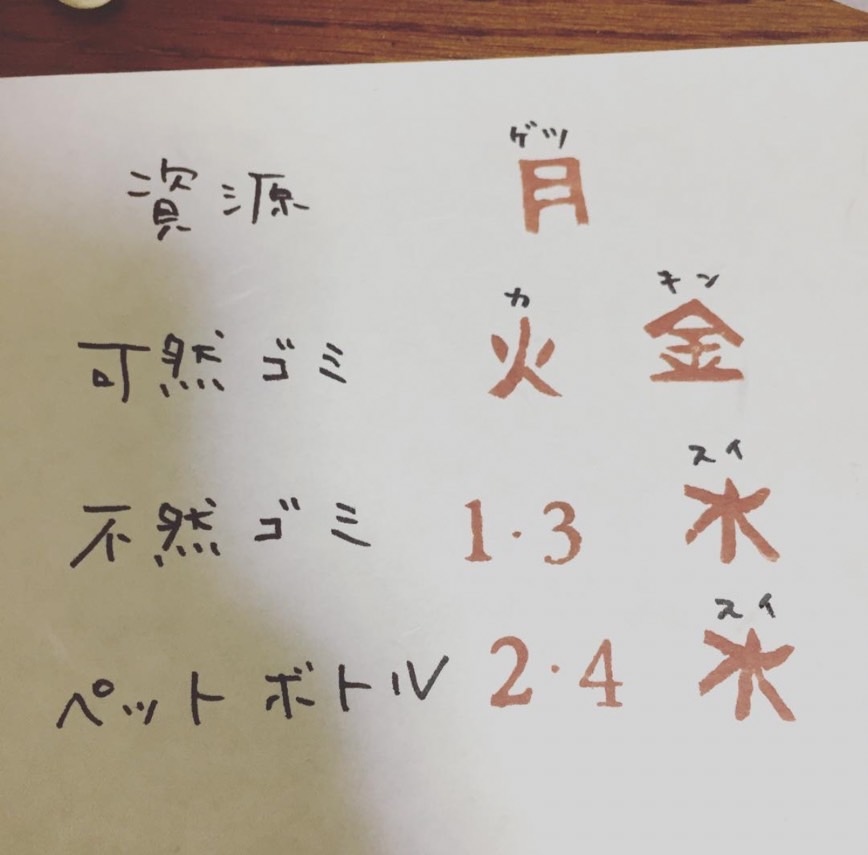 ゲツ
資源 月
カ キン
可然ゴミ 火 金
スイ
不然ゴミ 1・3 水
スイ
ペットボトル 2・4 水